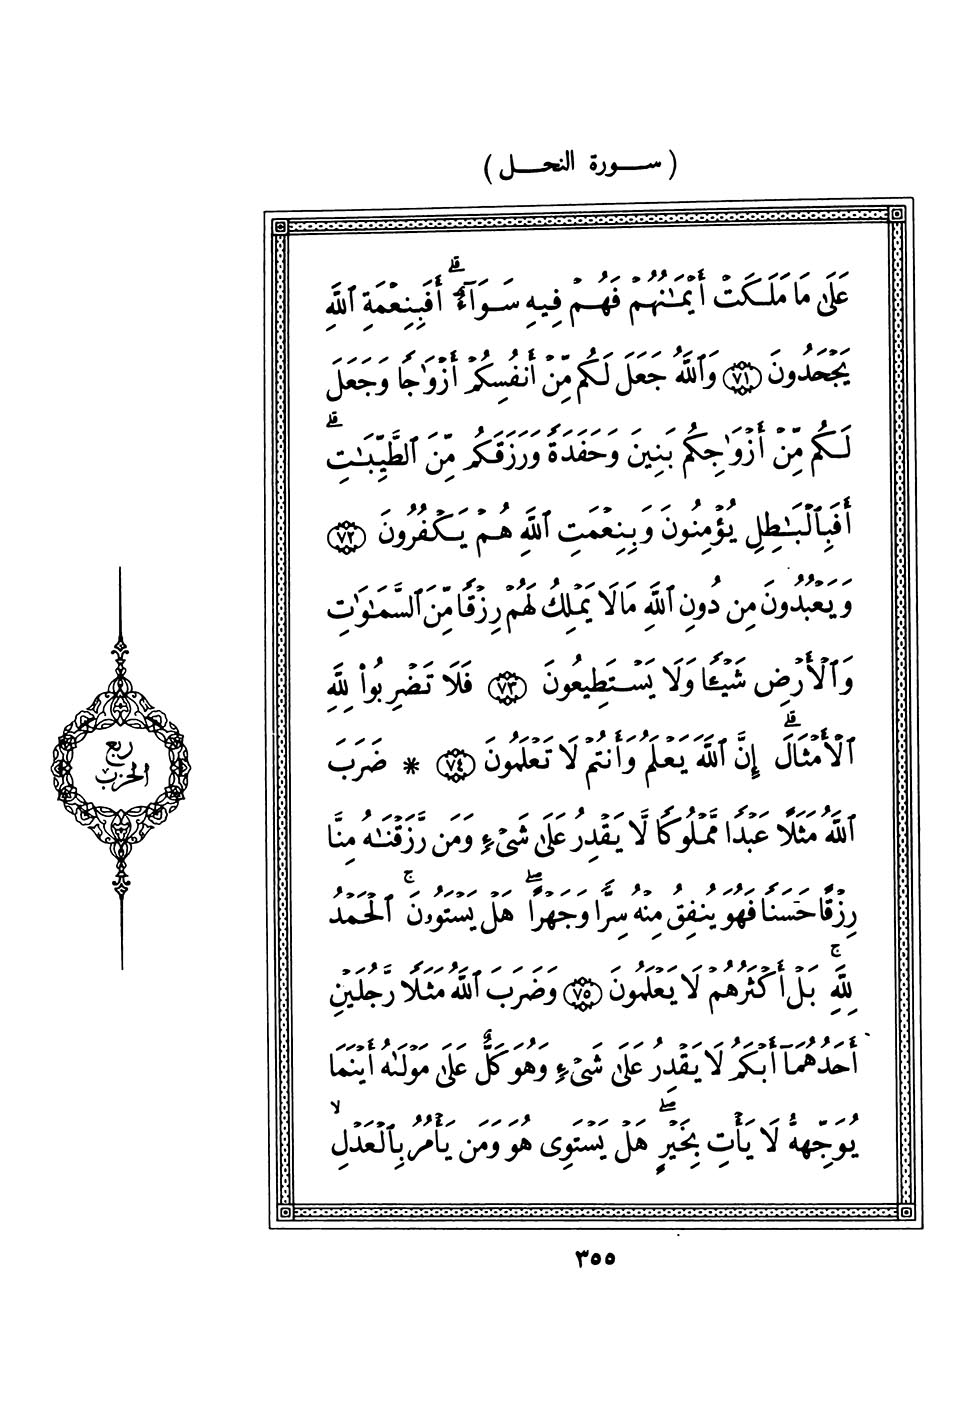 ( سورة النحل )
عَلَىٰ مَا مَلَكَتْ أَيْمَٰنُهُمْ فَهُمْ فِيهِ سَوَآءٌ ۚ أَفَبِنِعْمَةِ ٱللَّهِ
يَجْحَدُونَ ٧١ وَٱللَّهُ جَعَلَ لَكُم مِّنْ أَنفُسِكُمْ أَزْوَٰجًا وَجَعَلَ
لَكُم مِّنْ أَزْوَٰجِكُم بَنِينَ وَحَفَدَةً وَرَزَقَكُم مِّنَ ٱلطَّيِّبَٰتِ ۚ
أَفَبِٱلْبَٰطِلِ يُؤْمِنُونَ وَبِنِعْمَتِ ٱللَّهِ هُمْ يَكْفُرُونَ ٧٢
وَيَعْبُدُونَ مِن دُونِ ٱللَّهِ مَا لَا يَمْلِكُ لَهُمْ رِزْقًا مِّنَ ٱلسَّمَٰوَٰتِ
وَٱلْأَرْضِ شَيْـًٔا وَلَا يَسْتَطِيعُونَ ٧٣ فَلَا تَضْرِبُوا۟ لِلَّهِ
ٱلْأَمْثَالَ ۗ إِنَّ ٱللَّهَ يَعْلَمُ وَأَنتُمْ لَا تَعْلَمُونَ ٧٤ * ضَرَبَ
ٱللَّهُ مَثَلًا عَبْدًا مَّمْلُوكًا لَّا يَقْدِرُ عَلَىٰ شَىْءٍ وَمَن رَّزَقْنَٰهُ مِنَّا
رِزْقًا حَسَنًا فَهُوَ يُنفِقُ مِنْهُ سِرًّا وَجَهْرًا ۖ هَلْ يَسْتَوُۥنَ ۚ ٱلْحَمْدُ
لِلَّهِ ۚ بَلْ أَكْثَرُهُمْ لَا يَعْلَمُونَ ٧٥ وَضَرَبَ ٱللَّهُ مَثَلًا رَّجُلَيْنِ
أَحَدُهُمَآ أَبْكَمُ لَا يَقْدِرُ عَلَىٰ شَىْءٍ وَهُوَ كَلٌّ عَلَىٰ مَوْلَىٰهُ أَيْنَمَا
يُوَجِّههُّ لَا يَأْتِ بِخَيْرٍ ۖ هَلْ يَسْتَوِى هُوَ وَمَن يَأْمُرُ بِٱلْعَدْلِ ۙ
ربع
الحزب
٣٥٥